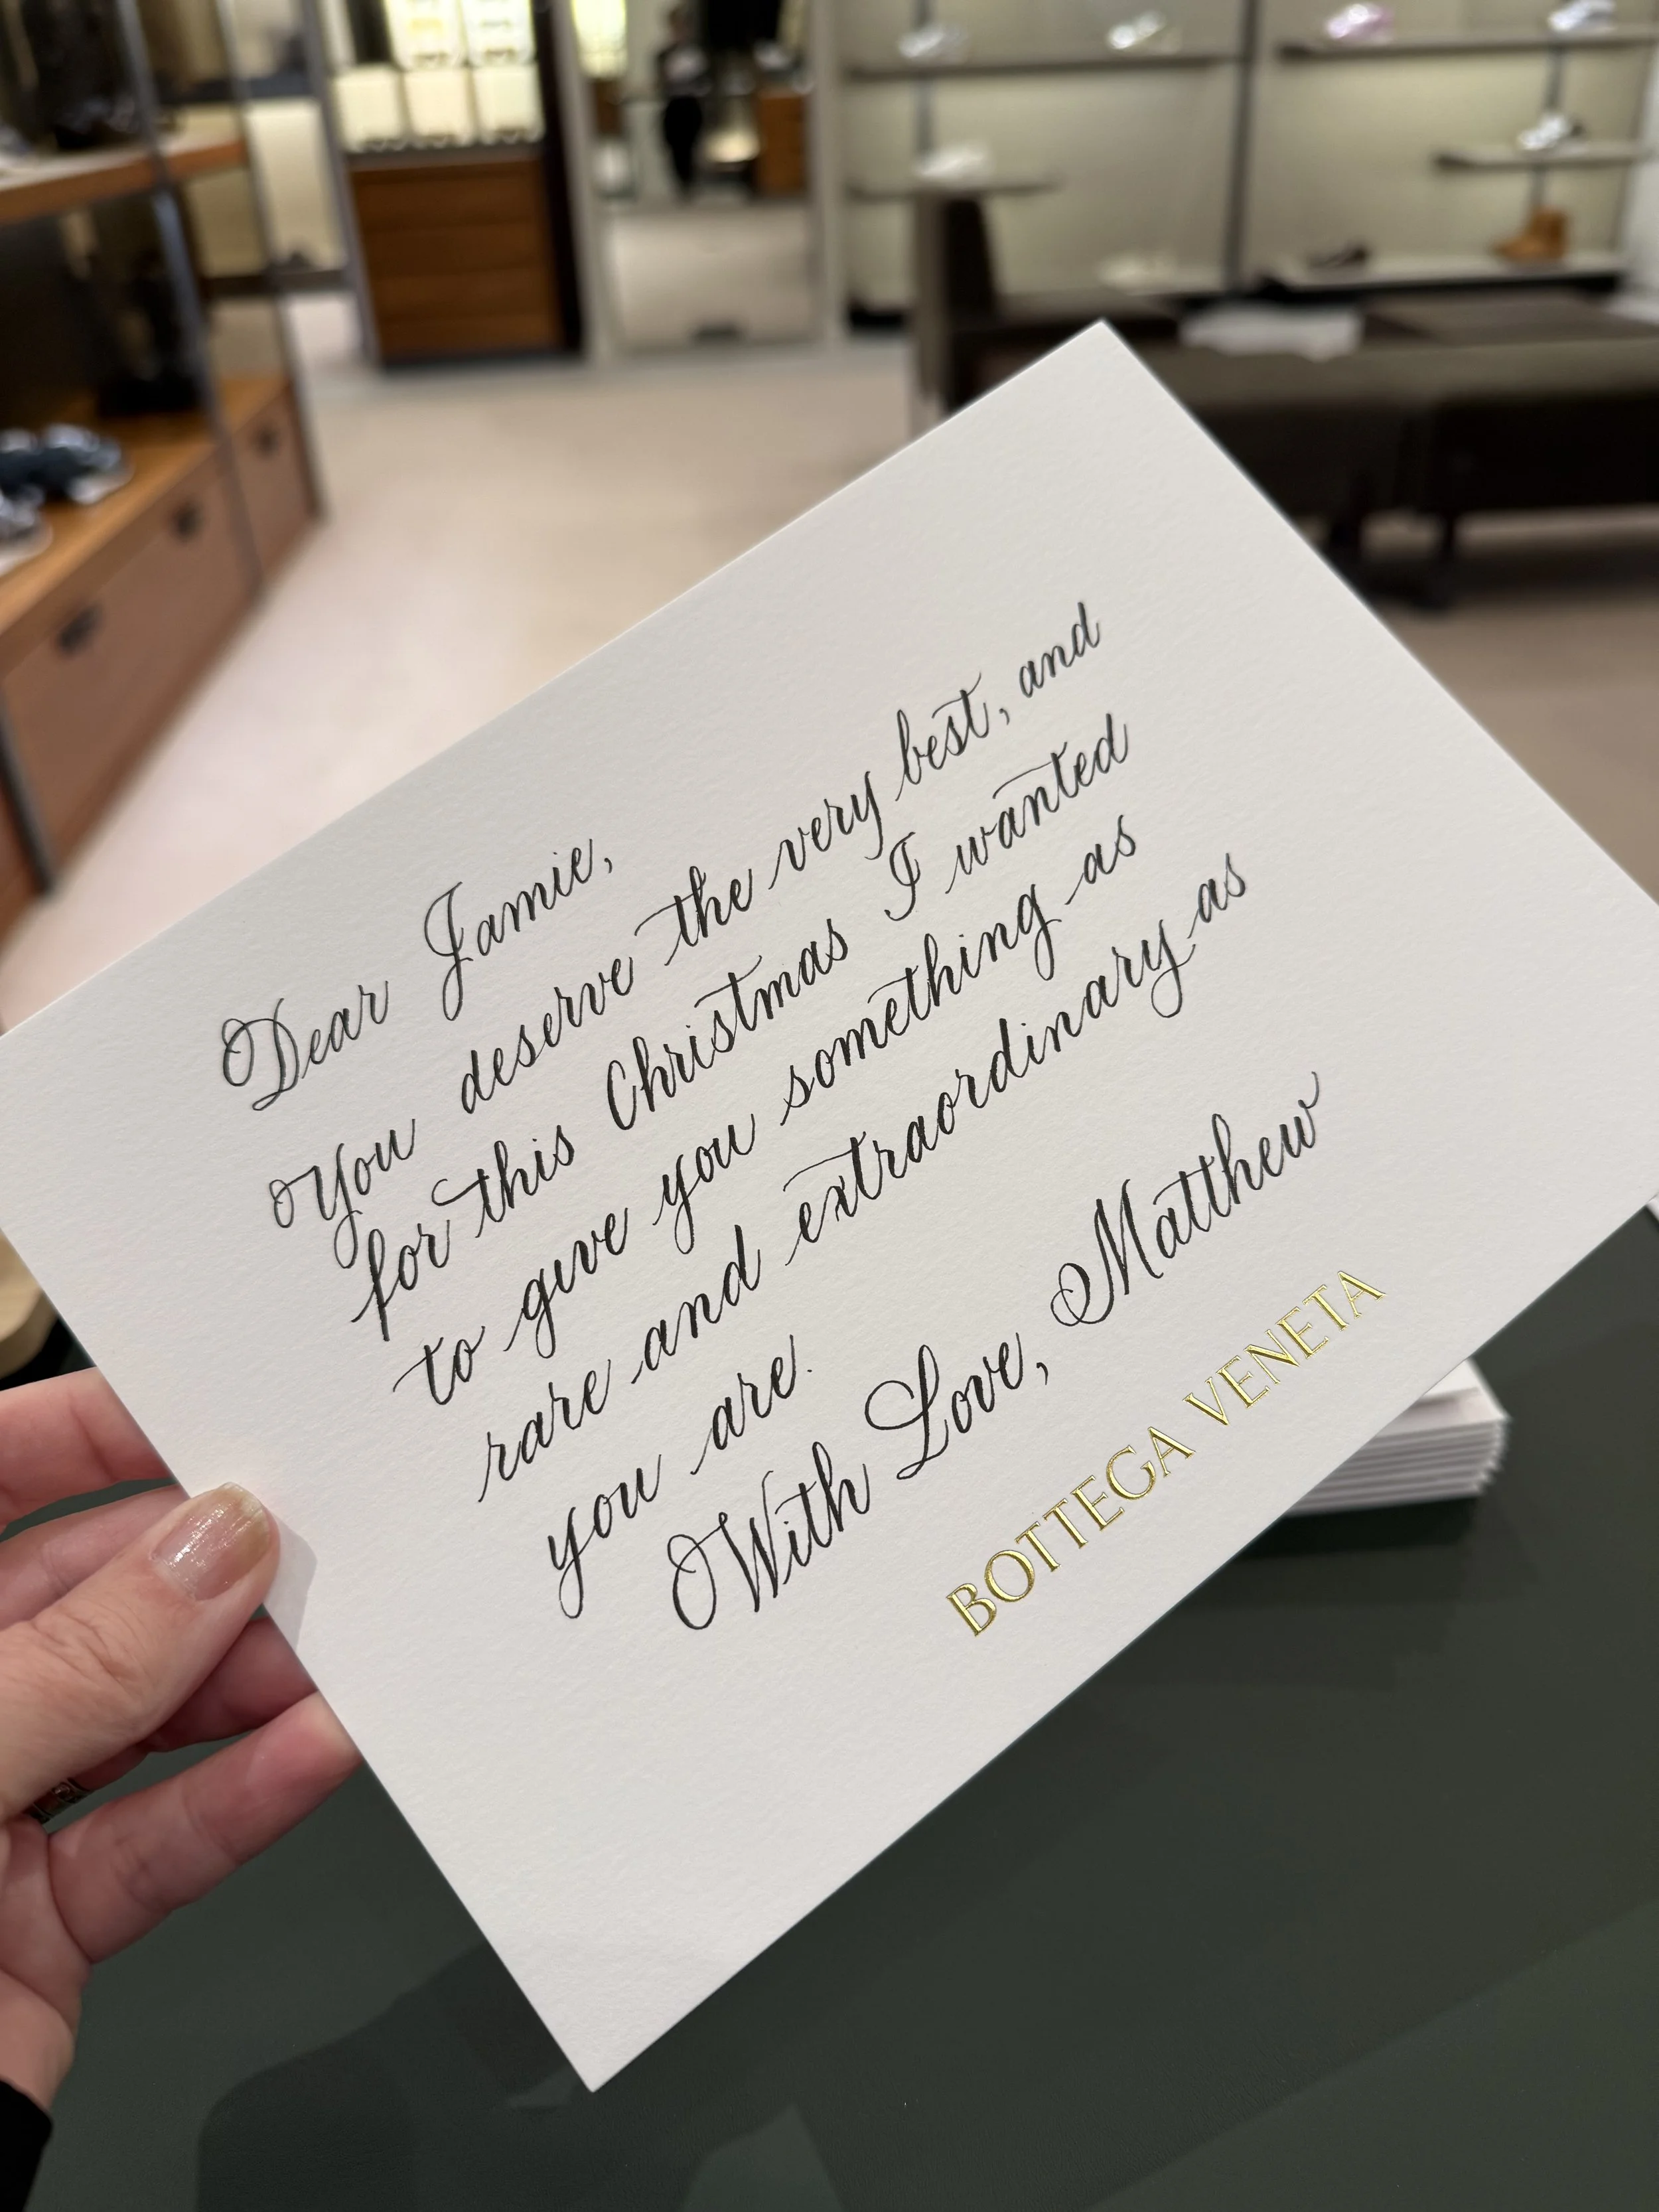 Dear Jamie,
You deserve the very best, and
for this Christmas I wanted
to give you something as
rare and extraordinary as
you are.
With Love, Matthew
BOTTEGA VENETA